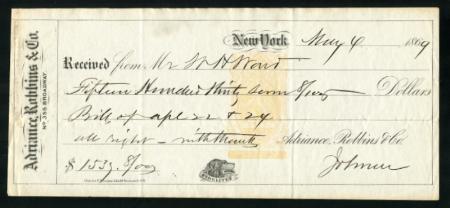 Adriance, Robbins & Co.
No. 355 BROADWAY.
New York. May 6 1869
Received from Mr W H Wont
Fifteen Hundred Thirty Seven 8/100 Dollars
Bill of apl 22 & 24
all right - with thanks Adriance, Robbins & Co.
$1537. 8/100
FIDELITER